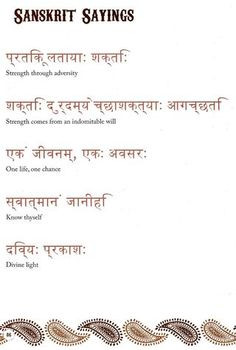 SANSKRIT SAYINGS
प्रतिकूलतायाः शक्तिः
Strength through adversity
शक्तिः दुर्दम्येच्छाशक्त्याः आगच्छति
Strength comes from an indomitable will
एकं जीवनम्, एकः अवसरः
One life, one chance
स्वात्मानं जानीहि
Know thyself
दिव्यः प्रकाशः
Divine light